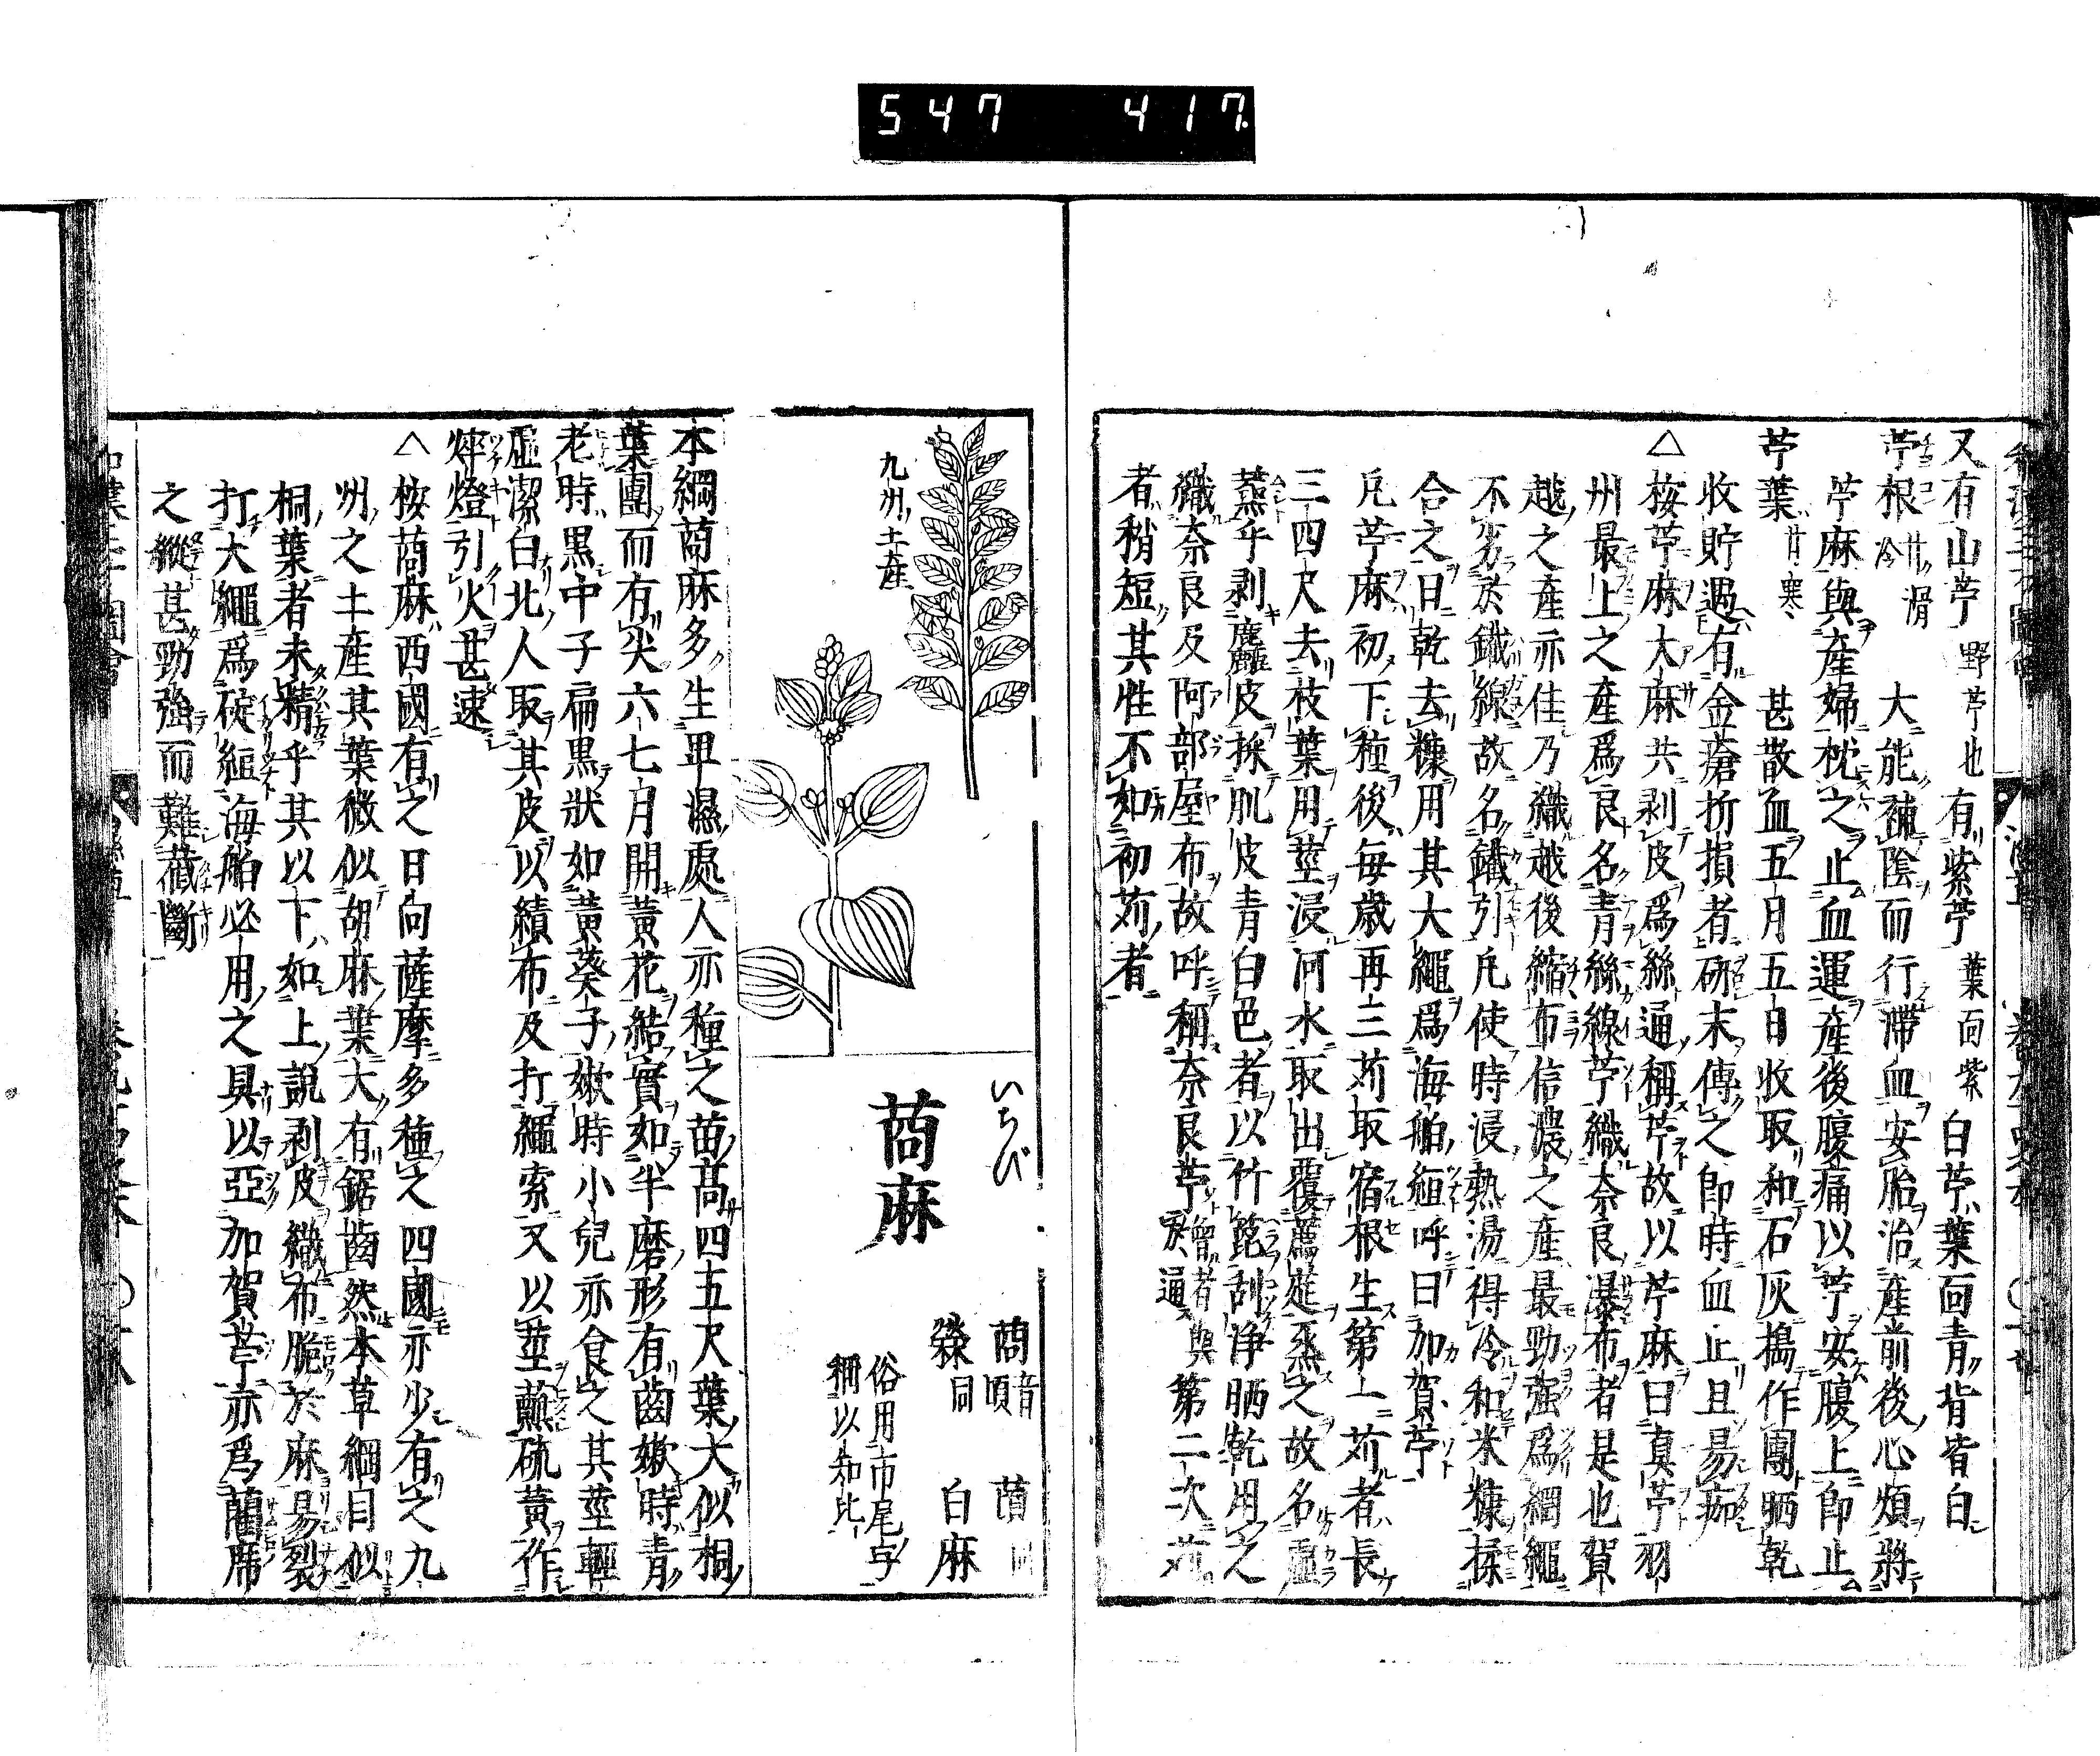 547 417
又有山苧 野苧也 有紫苧 葉面紫 白苧葉面青背皆白
苧根 甘滑冷 大能補陰而行滯血安胎治產前後心煩將
苧麻與產婦枕之止血運產後腹痛以苧安腹上卽止
苧葉 甘寒 甚散血五月五日收取和石灰搗作團晒乾
收貯遇有金瘡折損者研末傅之卽時血止且易痂
△按苧麻大麻共剥皮爲絲通稱苧故以苧麻曰真苧羽
州最上之產爲良名青絲線苧織奈良瀑布者是也賀
越之產亦佳乃織越後縮布信濃之產最勁强爲綱繩
不劣於鐵線故名鐵引凡使時浸熱湯得冷和米糠揉
合之日乾去糠用其大繩爲海舶縆呼曰加賀苧
凡苧麻初下種後每歲再三苅取宿根生第一苅者長
三四尺去枝葉用莖浸河水取出覆薦莚蒸之故名
蒸乎剥麤皮採肌皮青白色者以竹箆刮浄晒乾用之
織奈良及阿部屋布故呼稱奈良苧 第二次苅
者稍短其性不如初苅者
九州土產
いちび
莔麻
莔 音頃
檾 同 白麻
俗用市尾字
稱以知比
本綱莔麻多生卑濕處人亦種之苗高四五尺葉大似桐
葉團而有尖六七月開黃花結實如半磨形有齒嫩時青
老時黒中子扁黒狀如黃葵子嫩時小兒亦食之其莖輕
虛潔白北人取其皮以績布及打繩索又以莖蘸硫黃作
焠燈引火甚速
△按莔麻西國有之日向薩摩多種之四國亦少有之九
州之土產其葉微似胡麻葉大有鋸齒然本草綱目似
桐葉者未精乎其以下如上說剥皮織布脆於麻易裂
打大繩爲碇縆海舶必用之具以亞加賀苧亦爲藺席
之縱甚勁强而難截斷